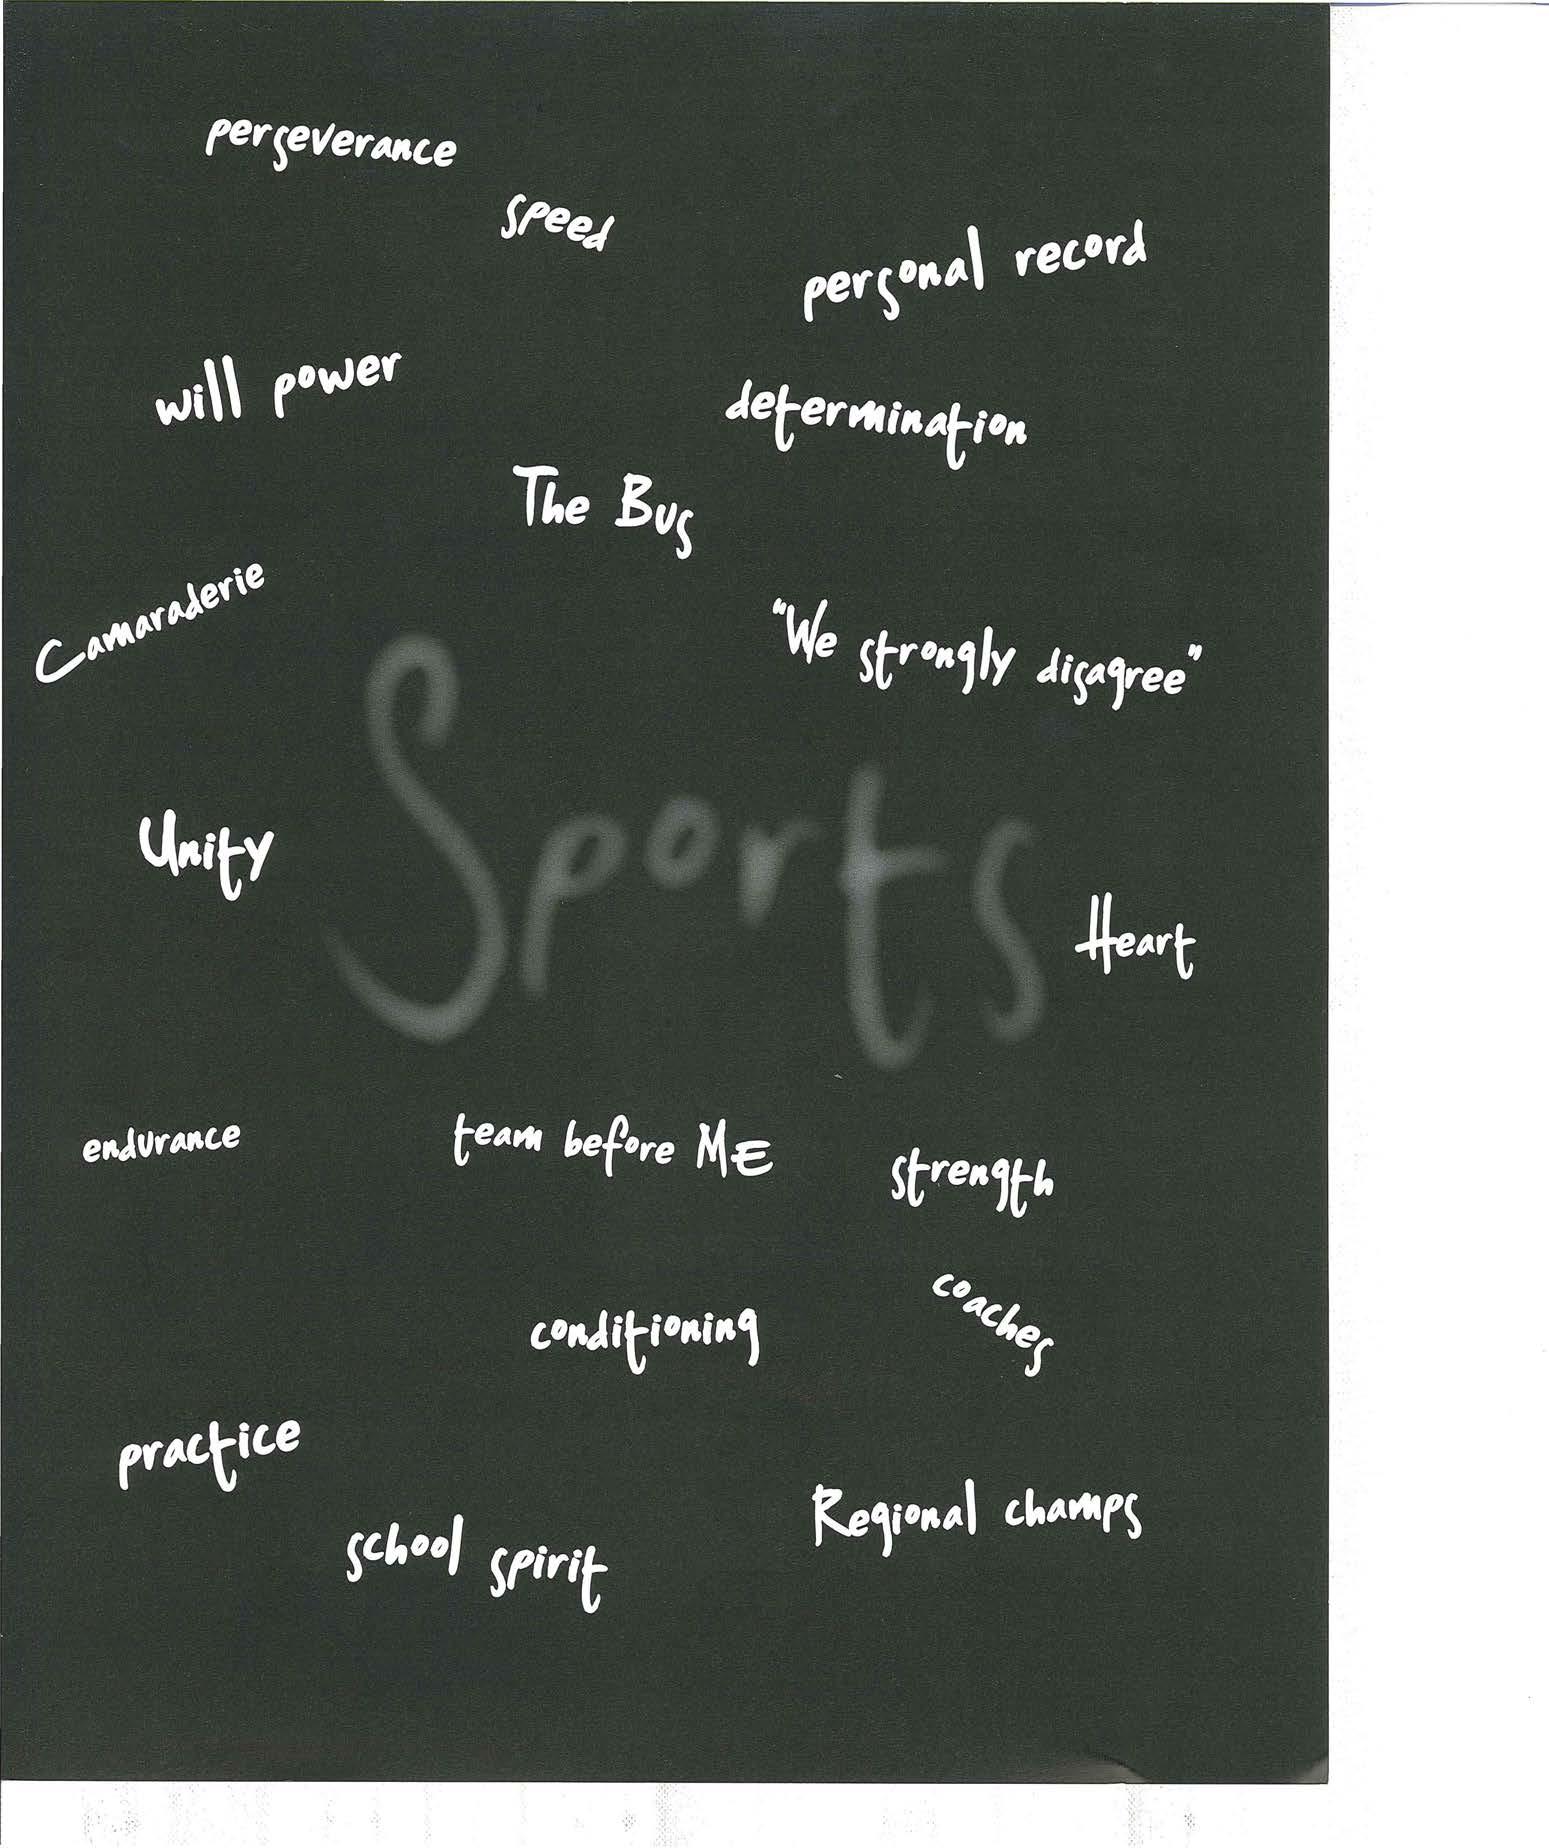 perseverance
speed
personal record
will power
determination
The Bus
Camaraderie
"We strongly disagree"
Sports
Unity
Heart
endurance
team before ME
strength
coaches
conditioning
practice
Regional champs
school spirit